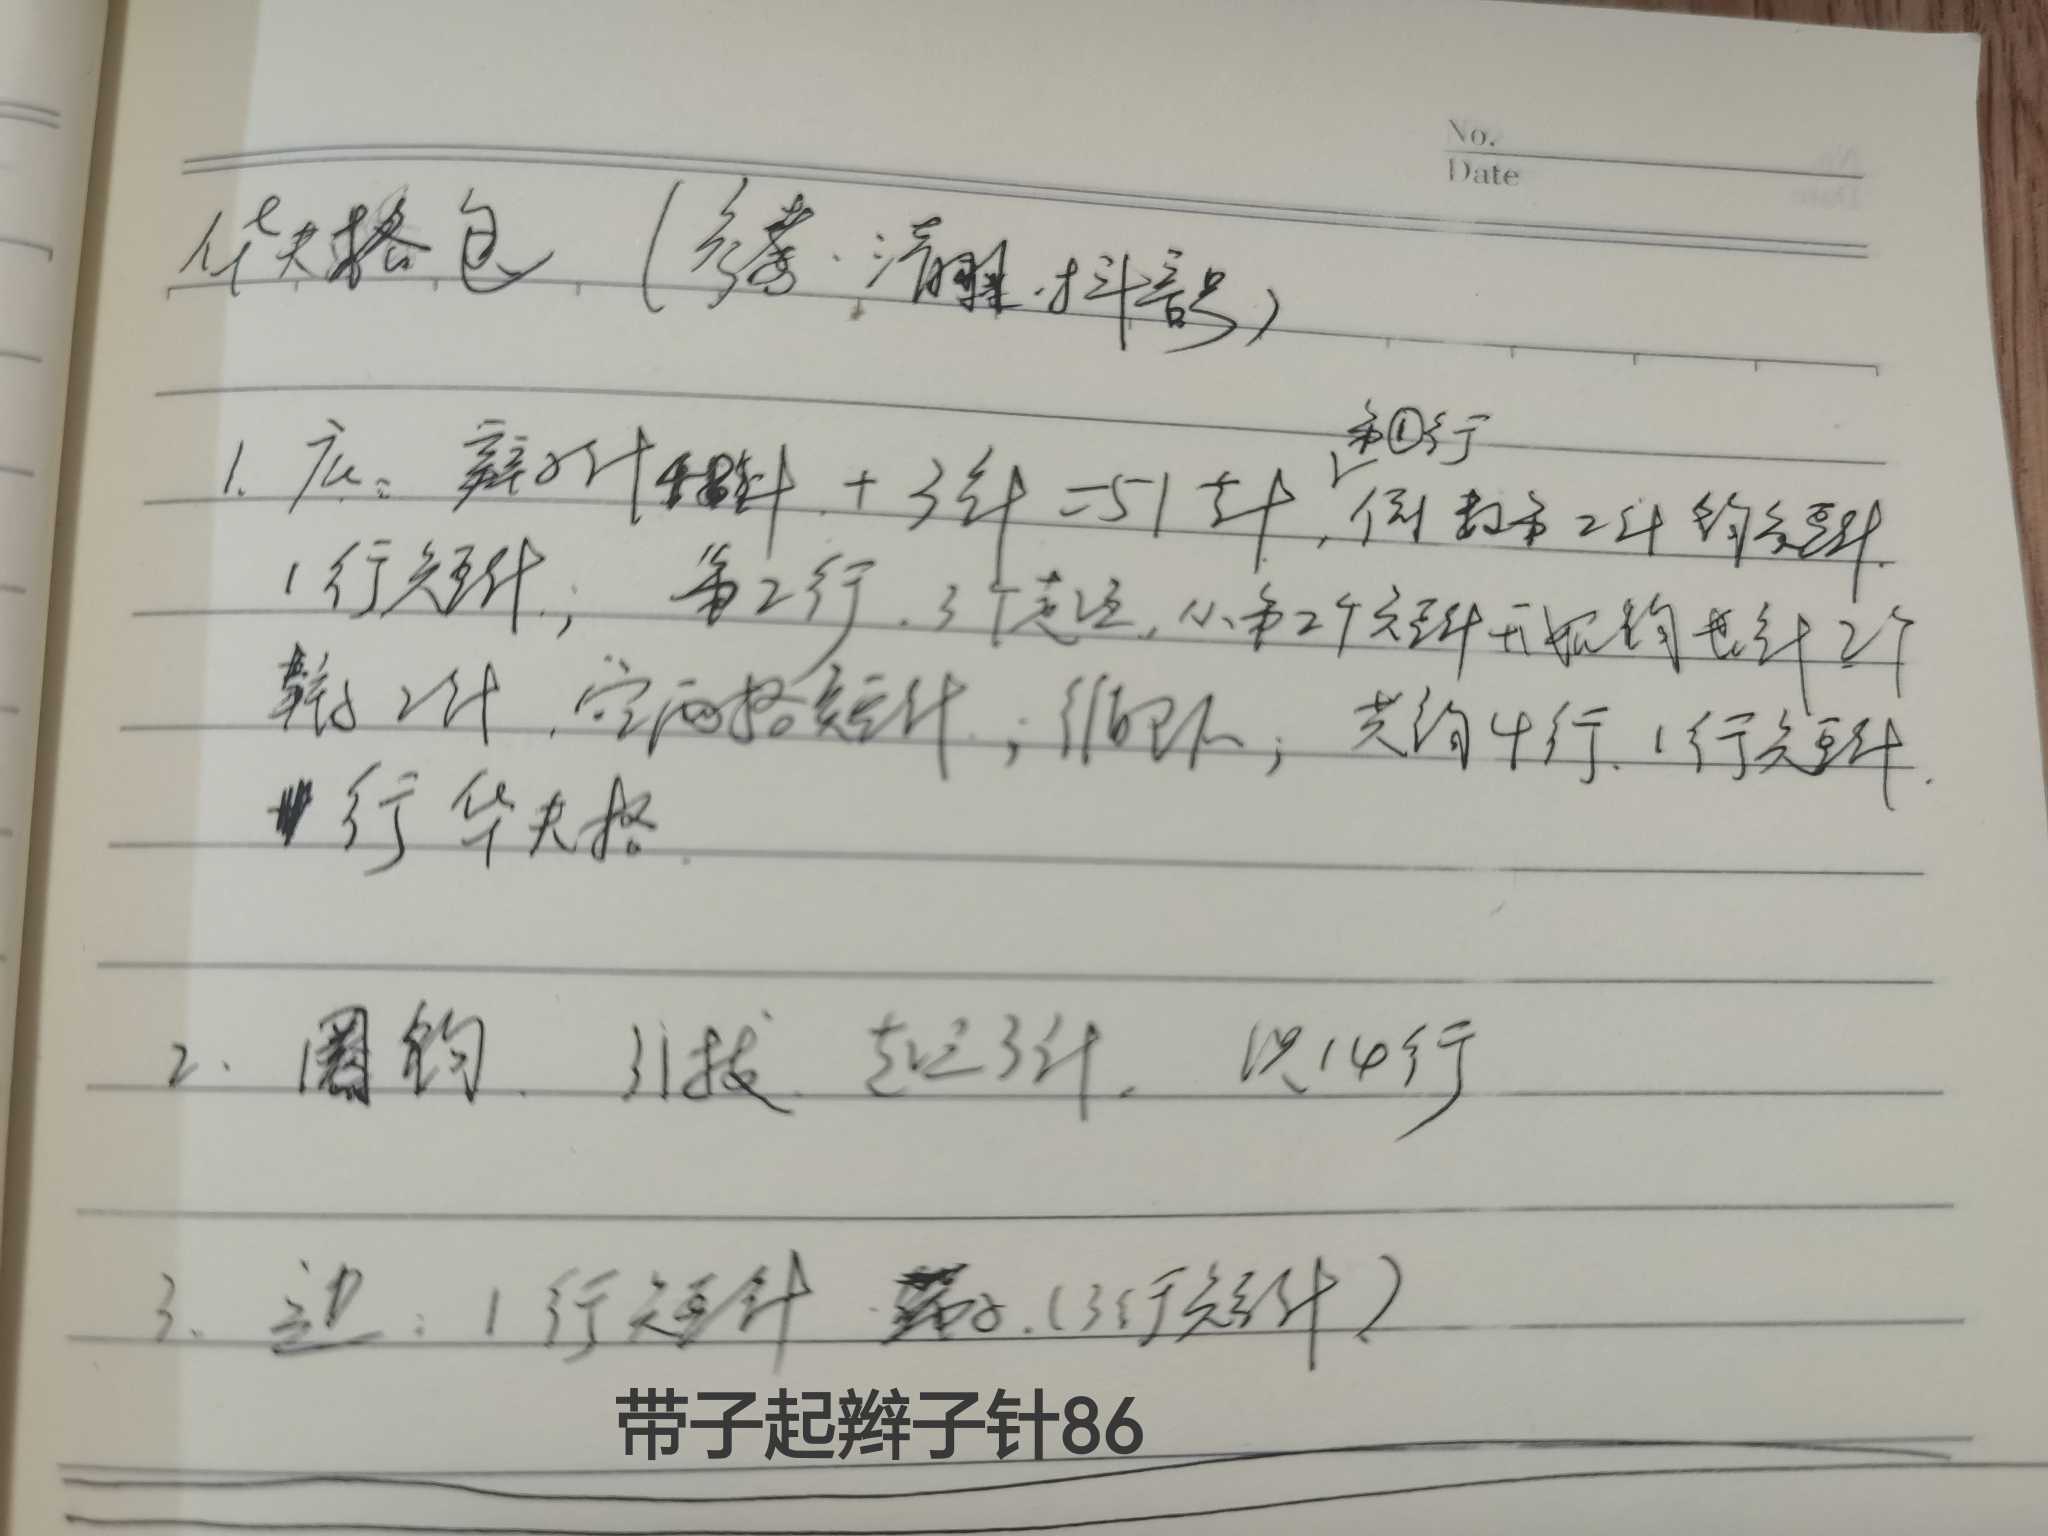 No.
Date
华夫格包 (参考:清醒.抖音号)
第①行
1. 底: 辫子针48针 + 3针 = 51针, 倒数第2针钩短针.
1行短针; 第2行. 3个起立, 从第2个短针开始钩长针2个
辫子2针. 空两格短针; 循环; 共钩4行. 1行短针.
行华夫格.
2. 圈钩. 引拔. 起立3针. 织14行
3. 边: 1行短针 辫子.(3行短针)
带子起辫子针86